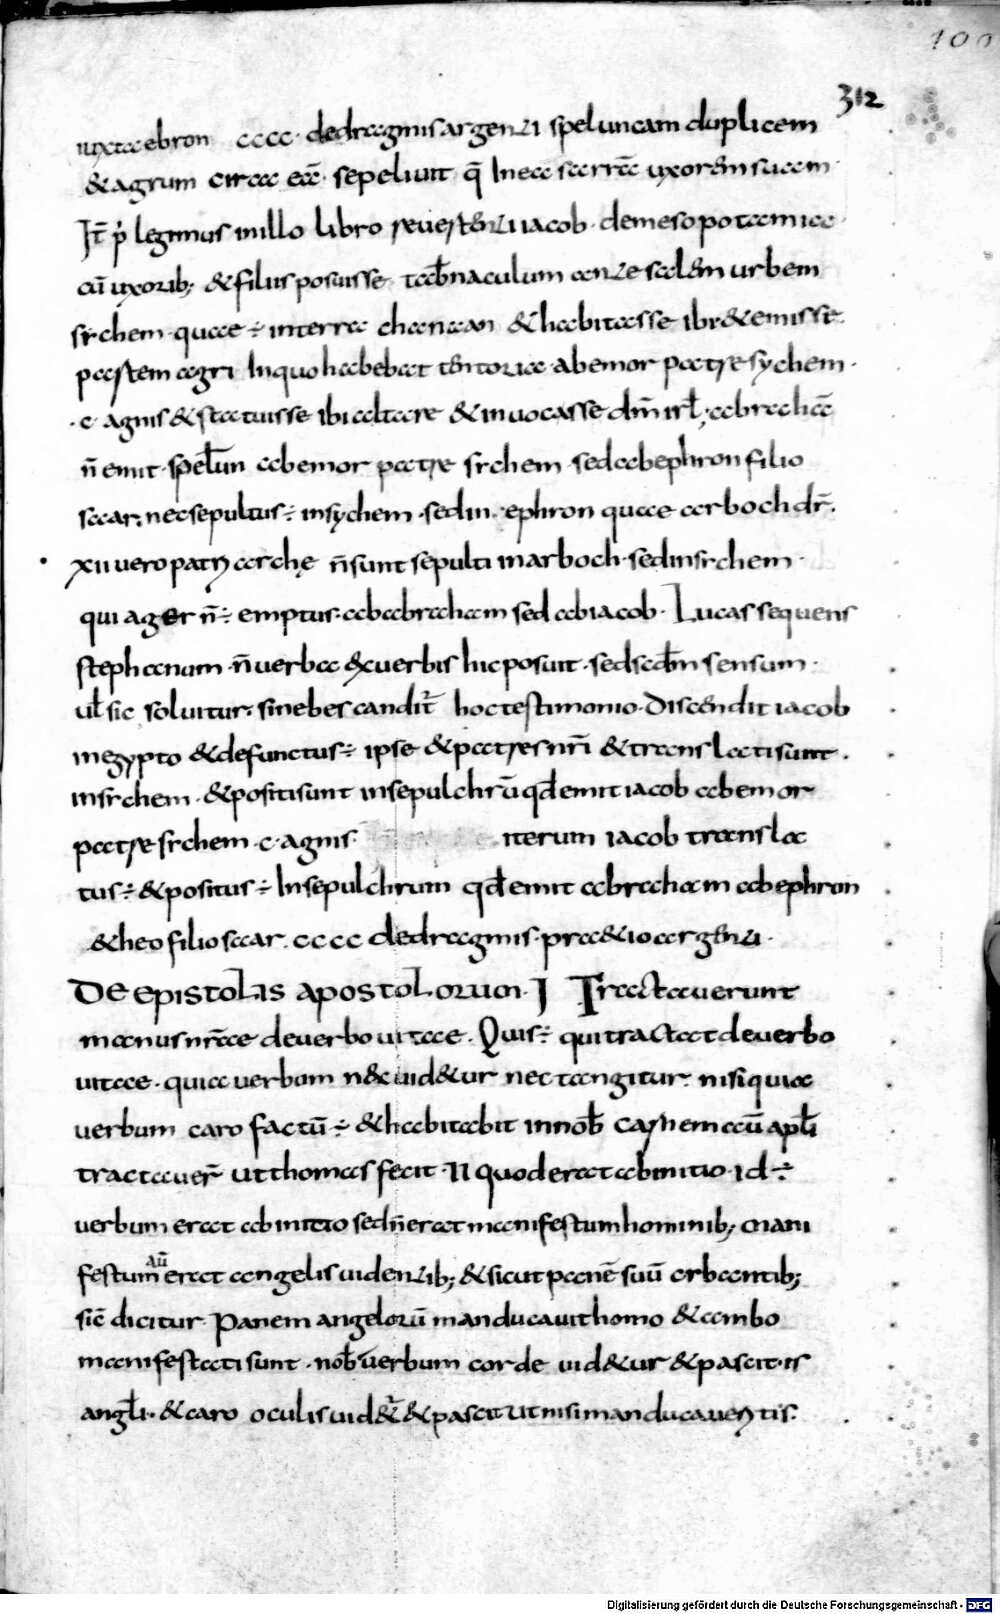 100
312
iuxta ebron cccc. dedragmis argenti speluncam duplicem
& agrum circa eā. sepeliuit q̄ Inea sarrā uxorem suam
It̄ p̣ legimus inillo libro reuertenti iacob. demesopotamia.
cū uxorib; & filiis posuisse tab̄naculum ante salem urbem
sichem. quae ÷ interra chanaan & habitasse ibi & emisse
partem agri Inquo habebat tentoria. abemor patre sychem.
.c. agnis & statuisse ibi altare & inuocasse dm̄ irl̄; abrachā
n̄ emit. spel̄un abemor patre sichem. sedabephron filio
saar. nec sepultus ÷ insychem. sed in. ephron quae arboch dr̄.
xii uero patrs archę n̄ sunt sepulti inarboch. sedinsichem.
qui ager n̄ ÷ emptus. ababracham sed abiacob. Lucas sequens
stephanum. n̄ uerba exuerbis hic posuit. sedscd̄m sensum.
ul̄ sic soluitur. sinebes candit̄ hoctestimonio. Discendit iacob
inegypto & defunctus ÷ ipse & patres nr̄i & translati sunt.
insichem. & positi sunt insepulchrū qd̄ emit iacob abemor
patre sichem .c. agnis. iterum iacob transla
tus ÷ & positus ÷ Insepulchrum qd̄ emit abracham abephron
& heo filio saar. cccc dedragmis. praetio argenti.
De epistolis apostolorum. I Tractauerunt
manus nr̄ae deuerbo uitae. Quis ÷ qui tractat deuerbo
uitae. quia uerbum nec uid&ur nec tangitur. nisi quia
uerbum caro factū ÷ & habitabit in nob̄ carnem eū apl̄i
tractauer̄ ut thomas fecit. N quod erat abinitio. id ÷
uerbum erat abinitio sed n̄ erat manifestum hominib; mani
festum aū erat angelis uidentib; & sicut panē suū orbantib;
sic̄ dicitur. Panem angelorū manducauit homo & ambo
manifestati sunt. nob̄ uerbum corde uid&ur & pascit. is
angl̄i. & caro oculis uid&r̄ & pascit ut nisi manducauertis.
Digitalisierung gefördert durch die Deutsche Forschungsgemeinschaft - DFG